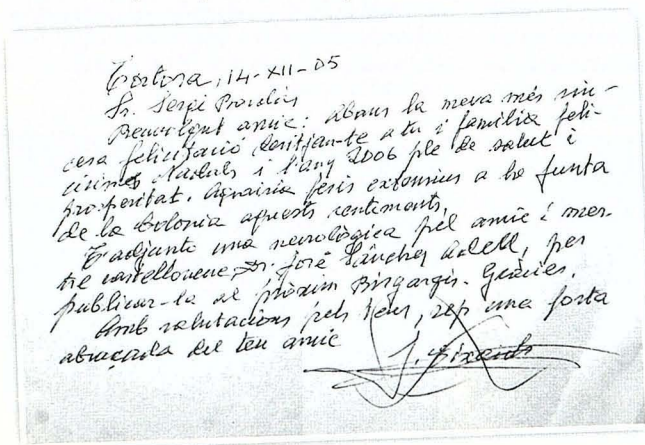 Tortosa, 14-XII-05
Sr. Sergi
Benvolgut amic: abans la meva més sin-
cera felicitació desitjan-te a tu i família feli-
cissimes Nadals i l'any 2006 ple de salut i
prosperitat. Agrairia fesis extensius a la Junta
de la Colonia aquests sentiments.
T'adjunto una necrològica pel amic i mes-
tre castellonenc Dr. José Sánchez Adell, per
publicar-la al pròxim Gràcies.
Amb salutacions pels teus, rep una forta
abraçada del teu amic